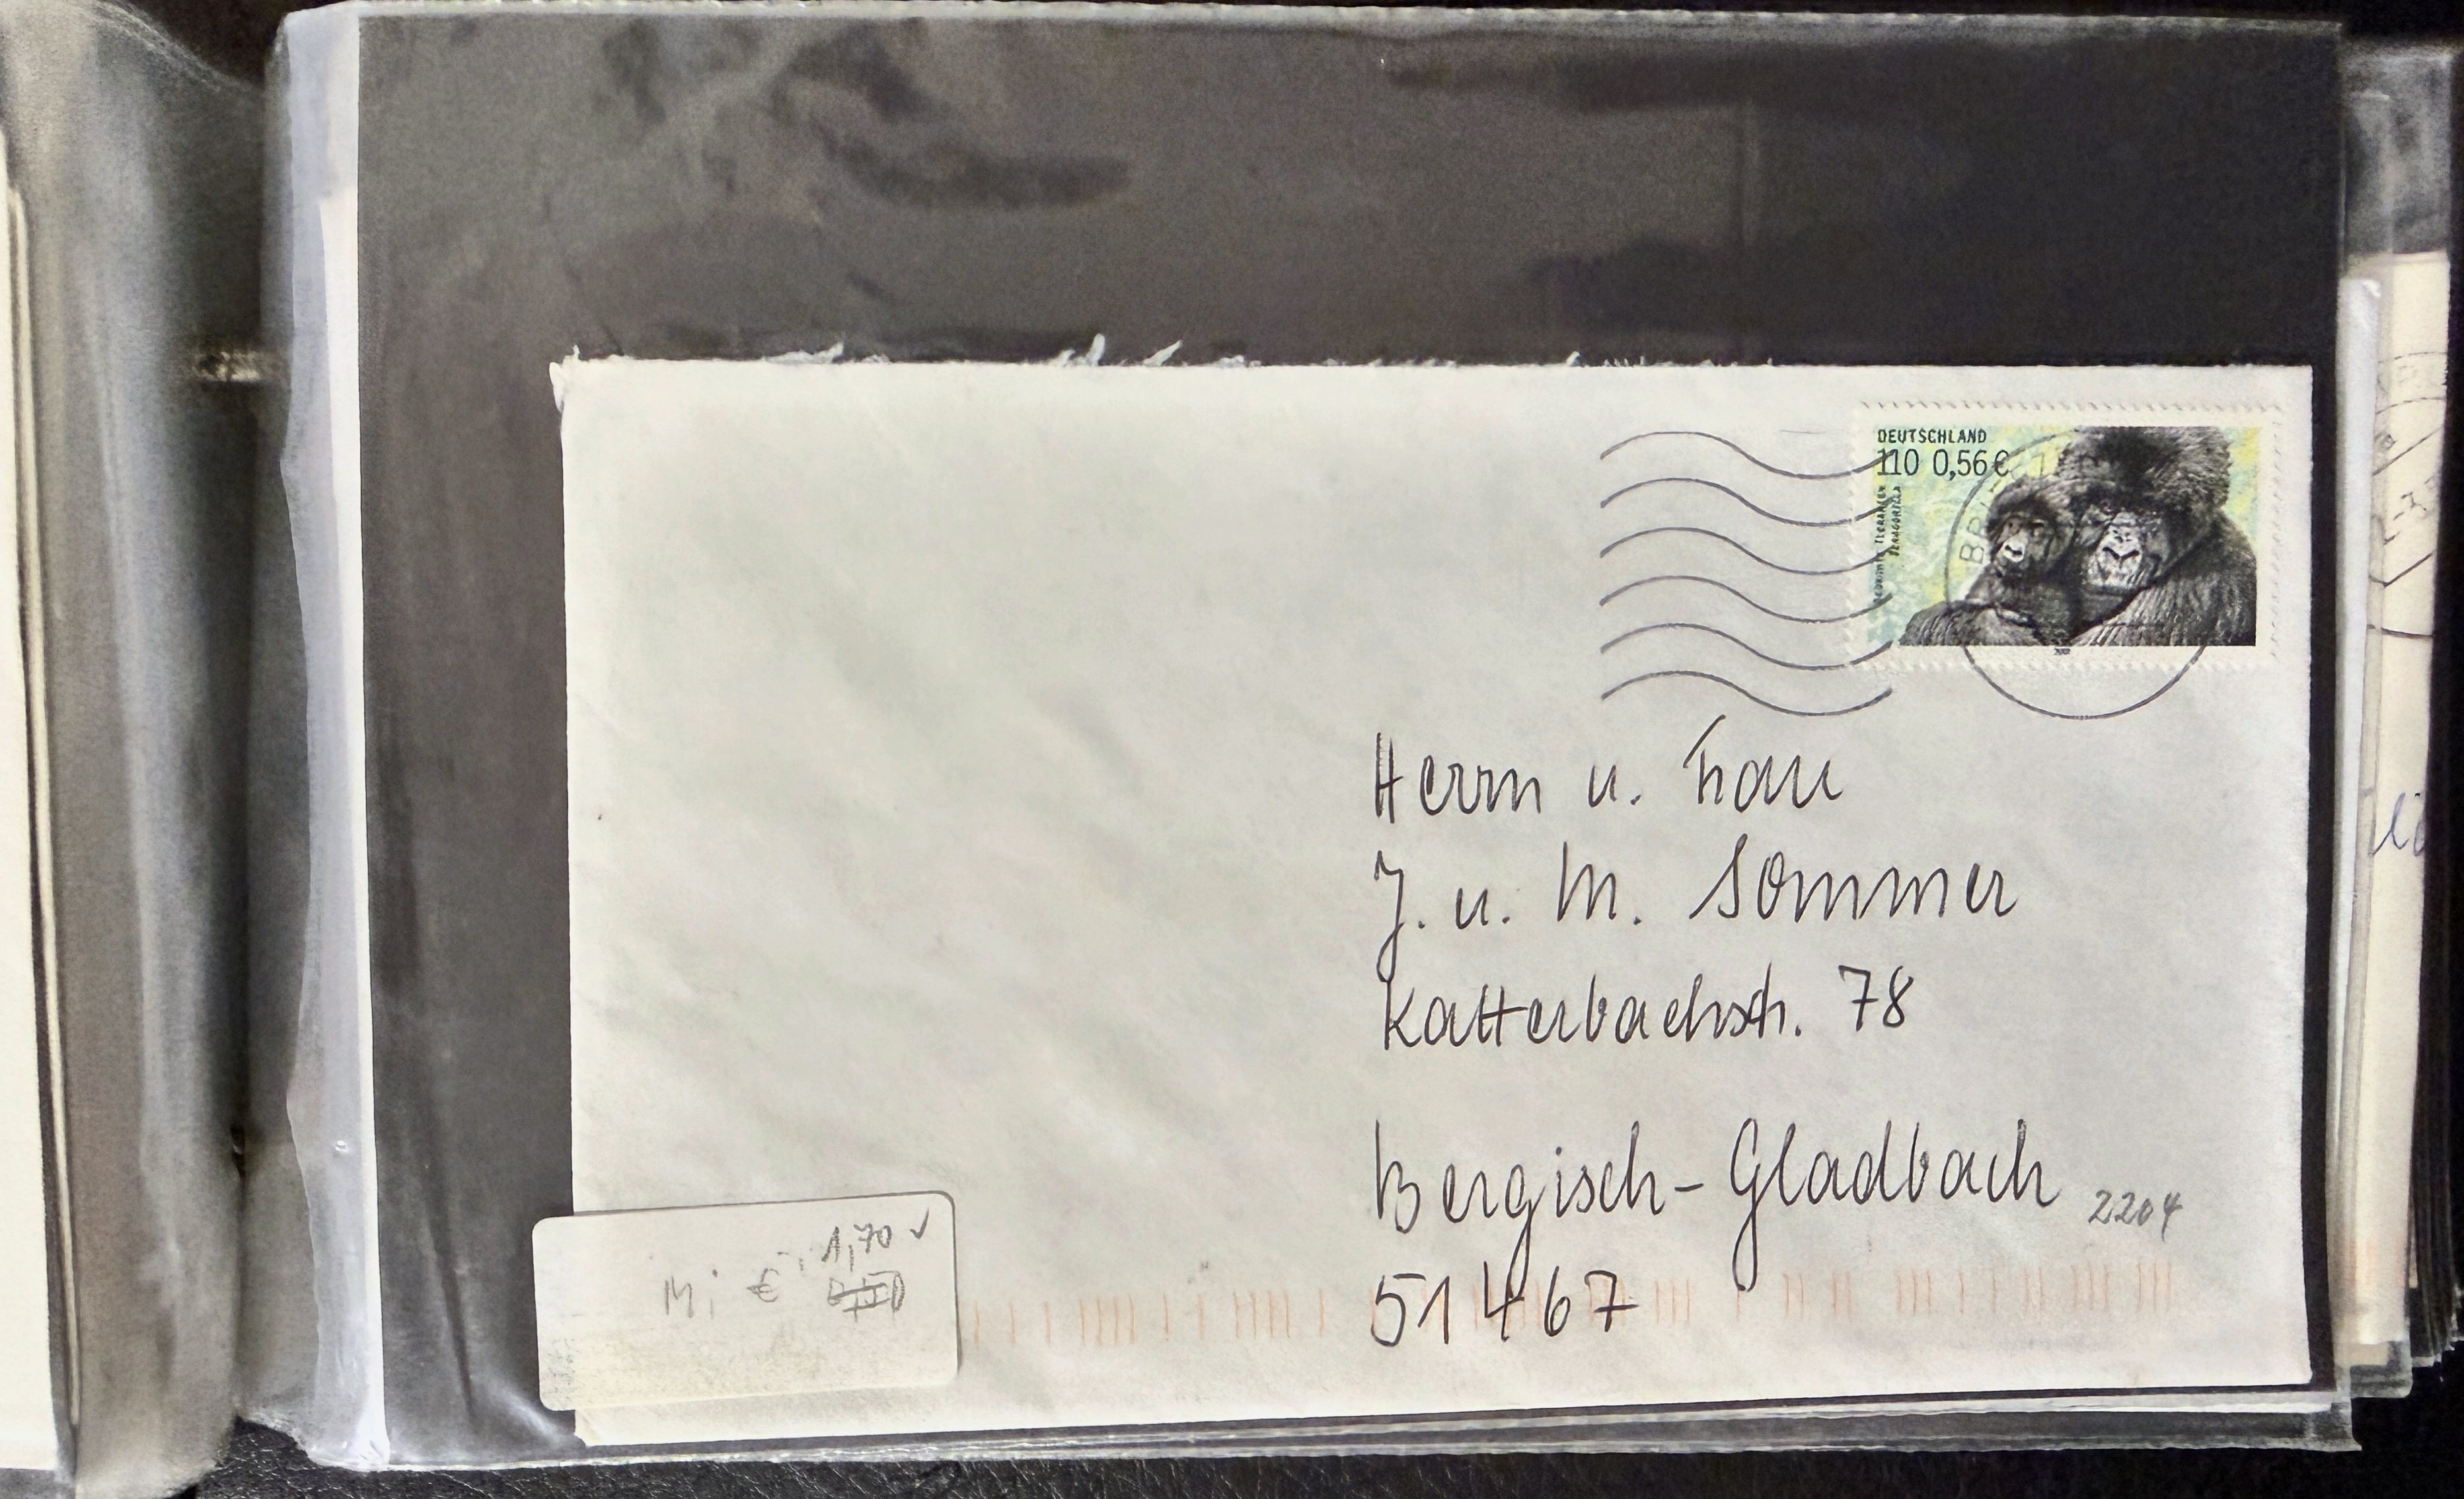 DEUTSCHLAND
110 0,56 €
BEDROHTE TIERARTEN
BERGGORILLA
Herrn u. Frau
J. u. M. Sommer
Katterbachstr. 78
Bergisch-Gladbach
2204
51467
Mi € 1,70 ✓